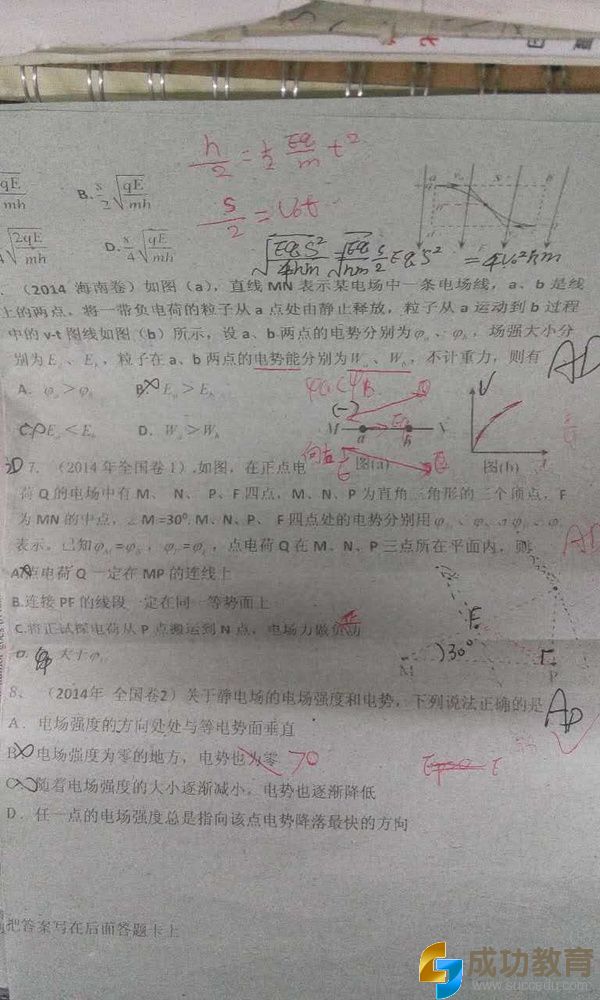 h/2 = 1/2 Eq/m t²
qE/mh B. s/2 √(qE/mh)
s/2 = v₀t
√(2qE/mh) D. s/4 √(qE/mh)
Eq s² = 4v₀²hm
(2014 海南卷)如图(a),直线MN表示某电场中一条电场线,a、b是线
上的两点,将一带负电荷的粒子从a点处由静止释放,粒子从a运动到b过程
中的v-t图线如图(b)所示,设a、b两点的电势分别为φa、φb,场强大小分
别为Ea、Eb,粒子在a、b两点的电势能分别为Wa、Wb,不计重力,则有 AD
A. φa>φb B. Ea>Eb
C. Ea<Eb D. Wa>Wb
M a b N
图(a) 图(b)
7. (2014年全国卷1).如图,在正点电
荷Q的电场中有M、N、P、F四点,M、N、P为直角三角形的三个顶点,F
为MN的中点,∠M=30°.M、N、P、F四点处的电势分别用
表示,已知 ,点电荷Q在M、N、P三点所在平面内,则 AD
A.点电荷Q一定在MP的连线上
B.连接PF的线段一定在同一等势面上
C.将正试探电荷从P点搬运到N点,电场力做负功
D. φP大于φM
F
M 30° P
8、(2014年 全国卷2)关于静电场的电场强度和电势,下列说法正确的是 AD
A. 电场强度的方向处处与等电势面垂直
B. 电场强度为零的地方,电势也为零 >0
C. 随着电场强度的大小逐渐减小,电势也逐渐降低
D. 任一点的电场强度总是指向该点电势降落最快的方向
把答案写在后面答题卡上
成功教育
www.succedu.com